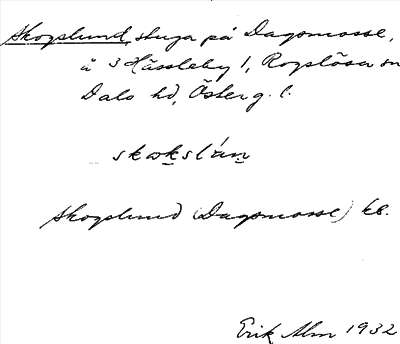 Skogslund, stuga på Dagsmosse,
å 3 Hässleby 1, Rogslösa sn
Dals hd, Österg. l.
skωkslán
Skogslund (Dagsmosse) kb.
Erik Alm 1932